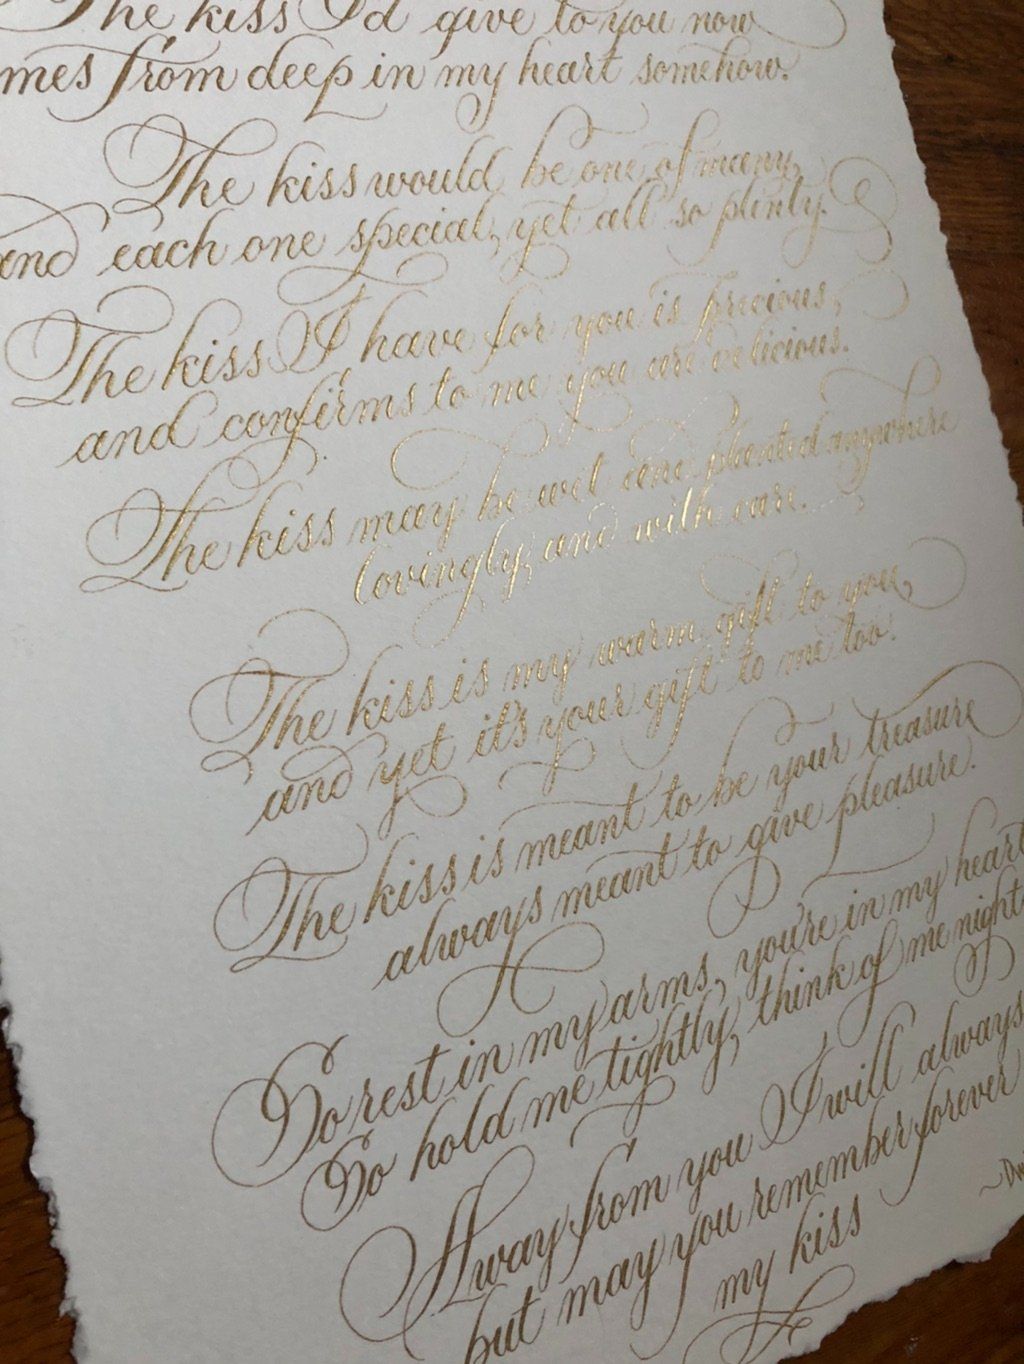 The kiss I'd give to you now
mes from deep in my heart somehow.
The kiss would be one of many,
and each one special, yet all so plenty.
The kiss I have for you is precious,
and confirms to me you are delicious.
The kiss may be wet and planted anywhere
lovingly, and with care.
The kiss is my warm gift to you,
and yet it's your gift to me too.
The kiss is meant to be your treasure
always meant to give pleasure.
So rest in my arms, you're in my heart
So hold me tightly, think of me night
Away from you I will always
but may you remember forever
my kiss